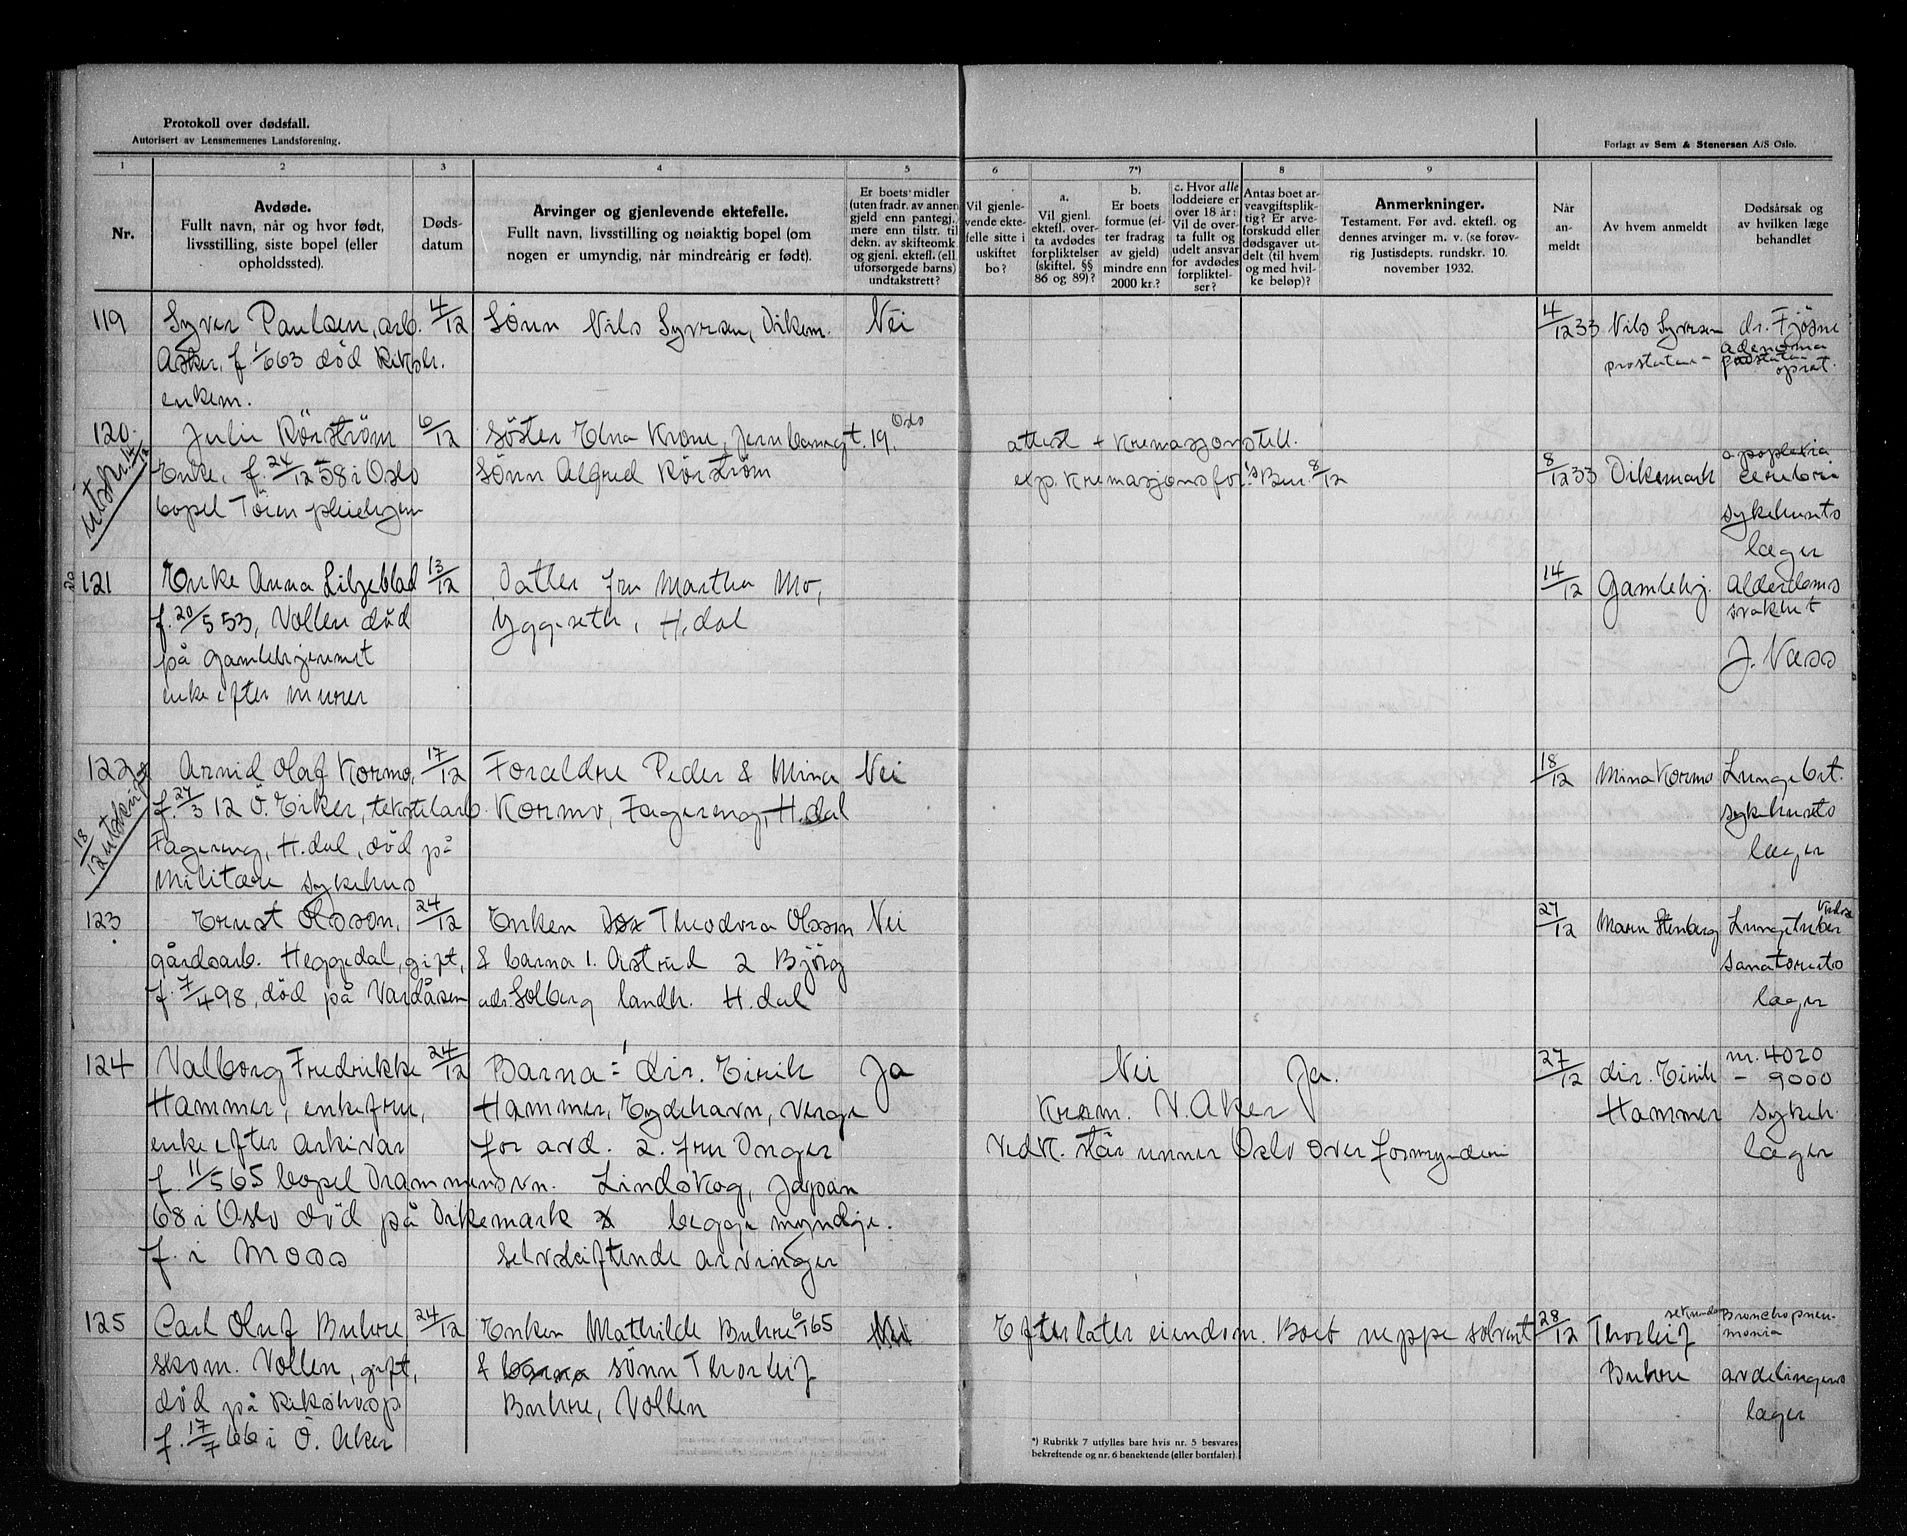 Protokoll over dødsfall.
Autorisert av Lensmennenes Landsforening.
Forlagt av Sem & Stenersen A/S Oslo.
1 2 3 4 5 6 7*) 8 9
Nr.
Avdøde.
Fullt navn, når og hvor født,
livsstilling, siste bopel (eller
opholdssted).
Døds-
datum
Arvinger og gjenlevende ektefelle.
Fullt navn, livsstilling og nøiaktig bopel (om
nogen er umyndig, når mindreårig er født).
Er boets midler
(uten fradr. av annen
gjeld enn pantegj.)
mere enn tilstr. til
dekn. av skifteomk.
og gjenl. ektefl. (ell.
uforsørgede barns)
undtakstrett?
Vil gjenle-
vende ekte-
felle sitte i
uskiftet
bo?
a.
Vil gjenl.
ektefl. over-
ta avdødes
forpliktelser
(skiftel. §§
86 og 89)?
b.
Er boets
formue (ef-
ter fradrag
av gjeld)
mindre enn
2000 kr.?
c. Hvor alle
loddeiere er
over 18 år:
Vil de over-
ta fullt og
udelt ansvar
for avdødes
forpliktel-
ser?
Antas boet ar-
veavgiftsplik-
tig? Er arve-
forskudd eller
dødsgaver ut-
delt (til hvem
og med hvil-
ke beløp)?
Anmerkninger.
Testament. Før avd. ektefl. og
dennes arvinger m. v. (se forøv-
rig Justisdepts. rundskr. 10.
november 1932.
Når
an-
meldt
Av hvem anmeldt
Dødsårsak og
av hvilken læge
behandlet
119 Syver Paulsen, arb. 4/12 Sønn Nils Syvrsen, Dikem. Nei 4/12 33 Nils Syvrsen dr. Fjøsne
Asker, f. 1/6 63 død Riksh. prostatan - adenoma
prostatan
oprat.
enkem.
120. Julie Rörström 6/12 Søster Elna Krone, Jernbanegt. 19. Oslo attest + kremasjonstill.
utskr. 14/12
Enke, f. 24/12 58 i Oslo Sønn Alfred Rörström exp. Kremasjonsfor.'s Bur. 8/12 8/12 33 Dikemark apoplexia
cerebri
bopel Tøien pleiehjem sykehusets
læger
121 Enke Anna Liljeblad 13/12 Datter fru Martha Mo, 14/12 Gamlehj. Alderdoms
svakhet
f. 20/5 53, Vollen død Yggeseth, H.dal
på gamlehjemmet J. Næss
enke efter murer
122 Arnid Olaf Kormo, 17/12 Foreldre Peder & Mina Nei 18/12 Mina Kormo Lungebet.
18/12 utskrift
f. 27/3 12 Ö. Eiker, tekstilarb. Kormo, Fagereng, H.dal sykehusets
Fagereng, H.dal, død på læger
Militære sykehus
123 Ernst Olsson, 24/12 Enken Theodora Olsson Nei 27/12 Marn Stenberg Lungetuber
gårdsarb. Heggedal, gift, & barna 1. Astrid 2 Bjørg sanatoriets
f. 7/4 98, død på Vardåsen adr. Solberg landh. H.dal læger
124 Valborg Fredrikke 24/12 Barna: 1 dir. Eirik Ja Nei Ja. 27/12 dir. Eirik nr. 4020
- 9000
Hammer, enkefru, Hammer, Eydehavn, verge Krem. V. Aker Hammer sykeh.
enke efter arkivar for avd. 2. fru Inger Vedk. står unner Oslo overformynderi læger
f. 11/5 65 bopel Drammensvn. Lindskog, Japan
68 i Oslo død på Dikemark begge myndige.
f. i Moss selvskiftende arvinger
125 Carl Oluf Buhre 24/12 Enken Mathilde Buhre 6/1 65 Nei Efterlater eiendom. Boet neppe solvent 28/12 Thorleif sekundær Bronchopneu-
monia
skom. Vollen, gift, & barna sønn Thorleif Buhre avdelingens
død på Rikshosp Buhre, Vollen læger
f. 17/7 66 i Ö. Aker
*) Rubrikk 7 utfylles bare hvis nr. 5 besvares
bekreftende og nr. 6 benektende (eller bortfaler).